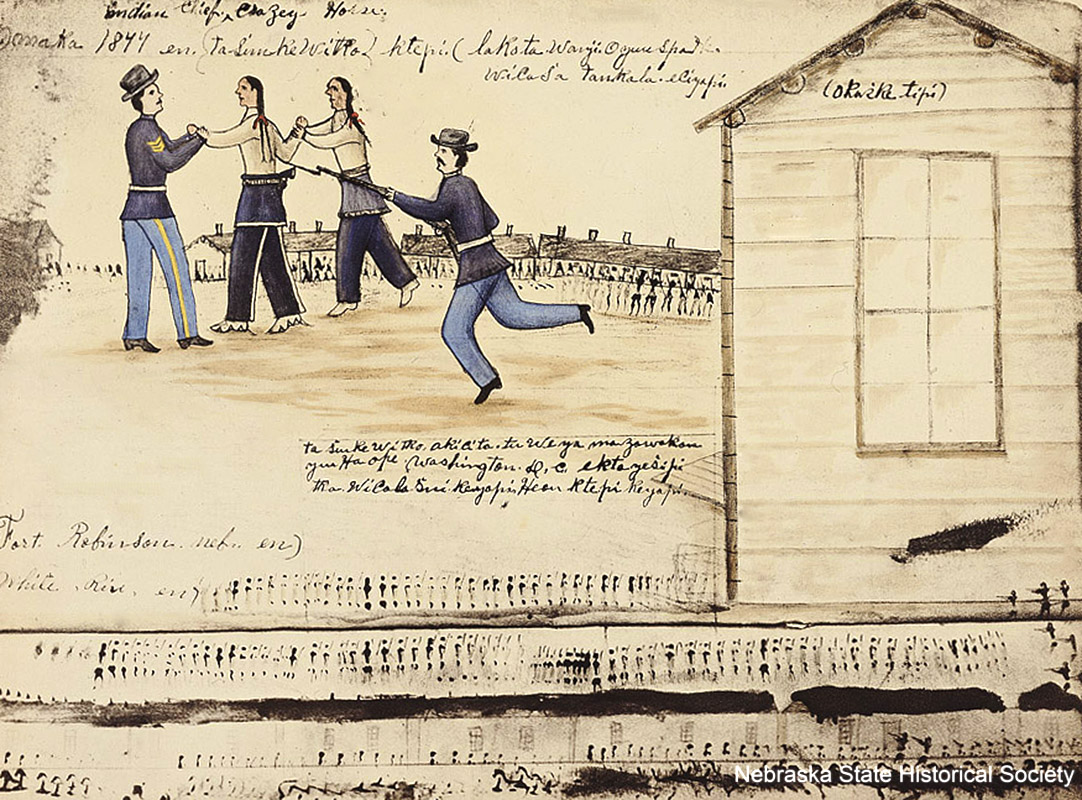 Indian Chief, Crazey Horse.
1877 en. (ta Sunke Witko) ktepi. (lakota Wanji
Wicasa tankala. eciyapi.
(Okaške tipi)
ta Sunke Witko, akicita. ta Weya mazawakan
yuu Ha ope. Washington. D, C. ekta yešipi
tka. Wicala Sni keyapi, Heon ktepi keyapi.
Fort. Robinson. neb. en)
White en)
Nebraska State Historical Society